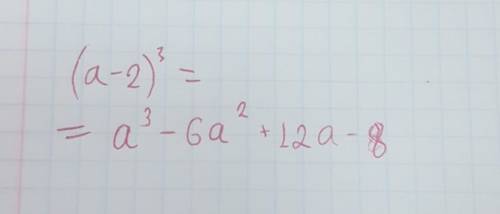 (a-2)³ =
= a³ - 6a² + 12a - 8